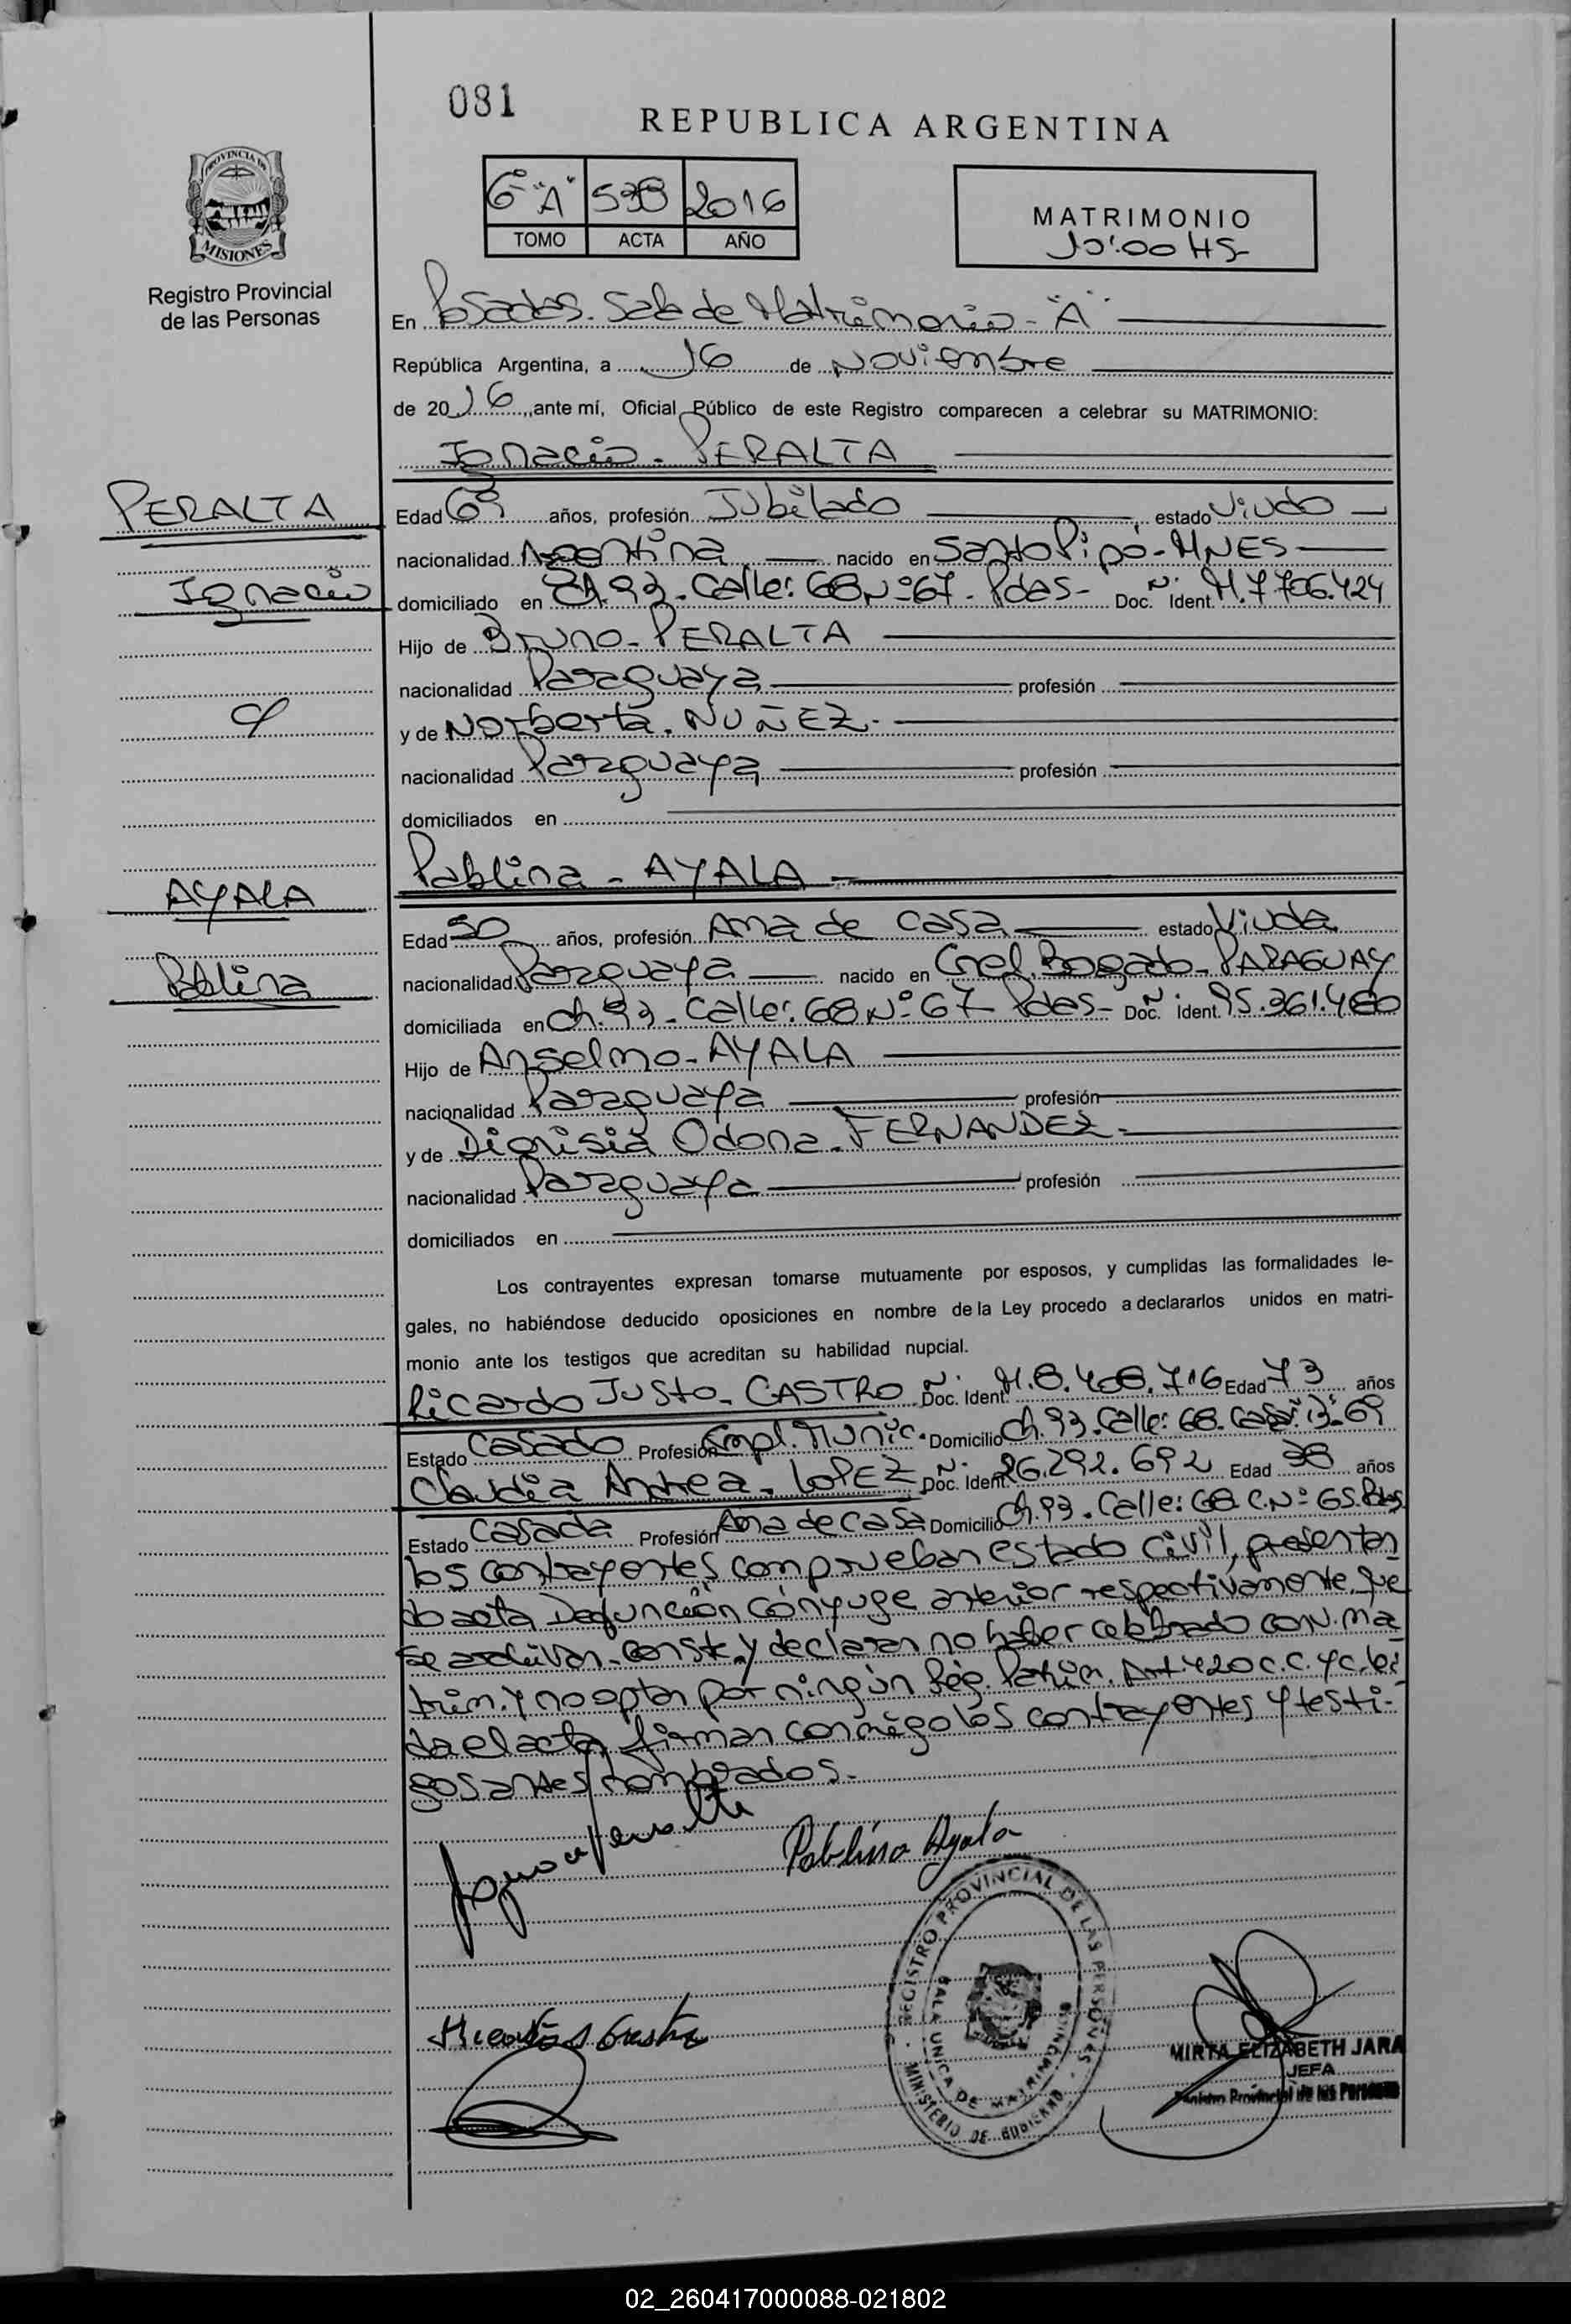 081
REPUBLICA ARGENTINA
6º "A" 538 2016
TOMO ACTA AÑO
MATRIMONIO
10:00 HS-
PROVINCIA DE
MISIONES
Registro Provincial
de las Personas
En Posadas. Sala de Matrimonio - "A"
República Argentina, a 16 de Noviembre
de 2016, ante mí, Oficial Público de este Registro comparecen a celebrar su MATRIMONIO:
Ignacio - PERALTA
PERALTA
Ignacio
c/
Edad 69 años, profesión Jubilado estado Viudo
nacionalidad Argentina nacido en Santo Pipó - MNES
domiciliado en Ch. 93. Calle: 68 Nº 67. Pdas- Doc. Nº Ident. M.7.706.424
Hijo de Bruno - PERALTA
nacionalidad Paraguaya profesión
y de Norberta. NUÑEZ.
nacionalidad Paraguaya profesión
domiciliados en
Pablina - AYALA
AYALA
Pablina
Edad 50 años, profesión Ama de casa estado Viuda
nacionalidad Paraguaya nacido en Cnel. Bogado - PARAGUAY
domiciliada en Ch. 93. Calle: 68 Nº 67 Pdas- Doc. Nº Ident. 95.361.480
Hijo de Anselmo - AYALA
nacionalidad Paraguaya profesión
y de Dionisia Odona - FERNANDEZ.
nacionalidad Paraguaya profesión
domiciliados en
Los contrayentes expresan tomarse mutuamente por esposos, y cumplidas las formalidades le-
gales, no habiéndose deducido oposiciones en nombre de la Ley procedo a declararlos unidos en matri-
monio ante los testigos que acreditan su habilidad nupcial.
Ricardo Justo - CASTRO Doc. Nº Ident. M.8.408.716 Edad 73 años
Estado Casado Profesión Empl. Munic. Domicilio Ch. 93. Calle: 68. Casa: 69
Claudia Andrea - LOPEZ Doc. Nº Ident. 26.292.692 Edad 38 años
Estado Casada Profesión Ama de casa Domicilio Ch. 93. Calle: 68 C. Nº 65. Pdas
los contrayentes comprueban estado civil, presentan
do acta Defunción cónyuge anterior respectivamente que
se archivan - conste y declaran no haber celebrado conv. ma
trim. y no optan por ningún Rég. Patrim. Art. 420 C.C. y C. leí
da el acta, firman conmigo los contrayentes y testi-
gos antes nombrados.-
Pablina Ayala
REGISTRO PROVINCIAL DE LAS PERSONAS
SALA UNICA DE MATRIMONIO
MINISTERIO DE GOBIERNO
MIRTA ELIZABETH JARA
JEFA
Registro Provincial de las Personas
02_260417000088-021802